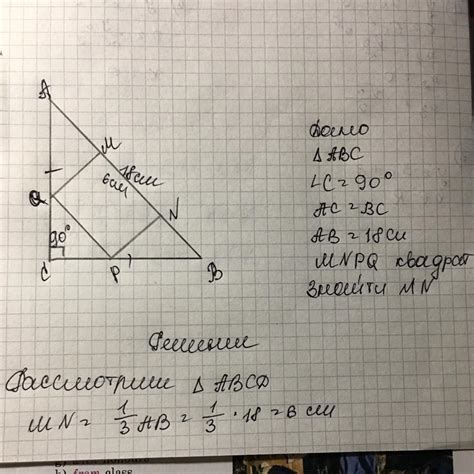 A
M
18см
6см
Q
N
90°
C
P
B
Дано
△ABC
∠C = 90°
AC = BC
AB = 18 см
MNPQ квадрат
Знайти MN
Решении
Рассмотрим △ ABC
MN = 1/3 AB = 1/3 · 18 = 6 см
from class